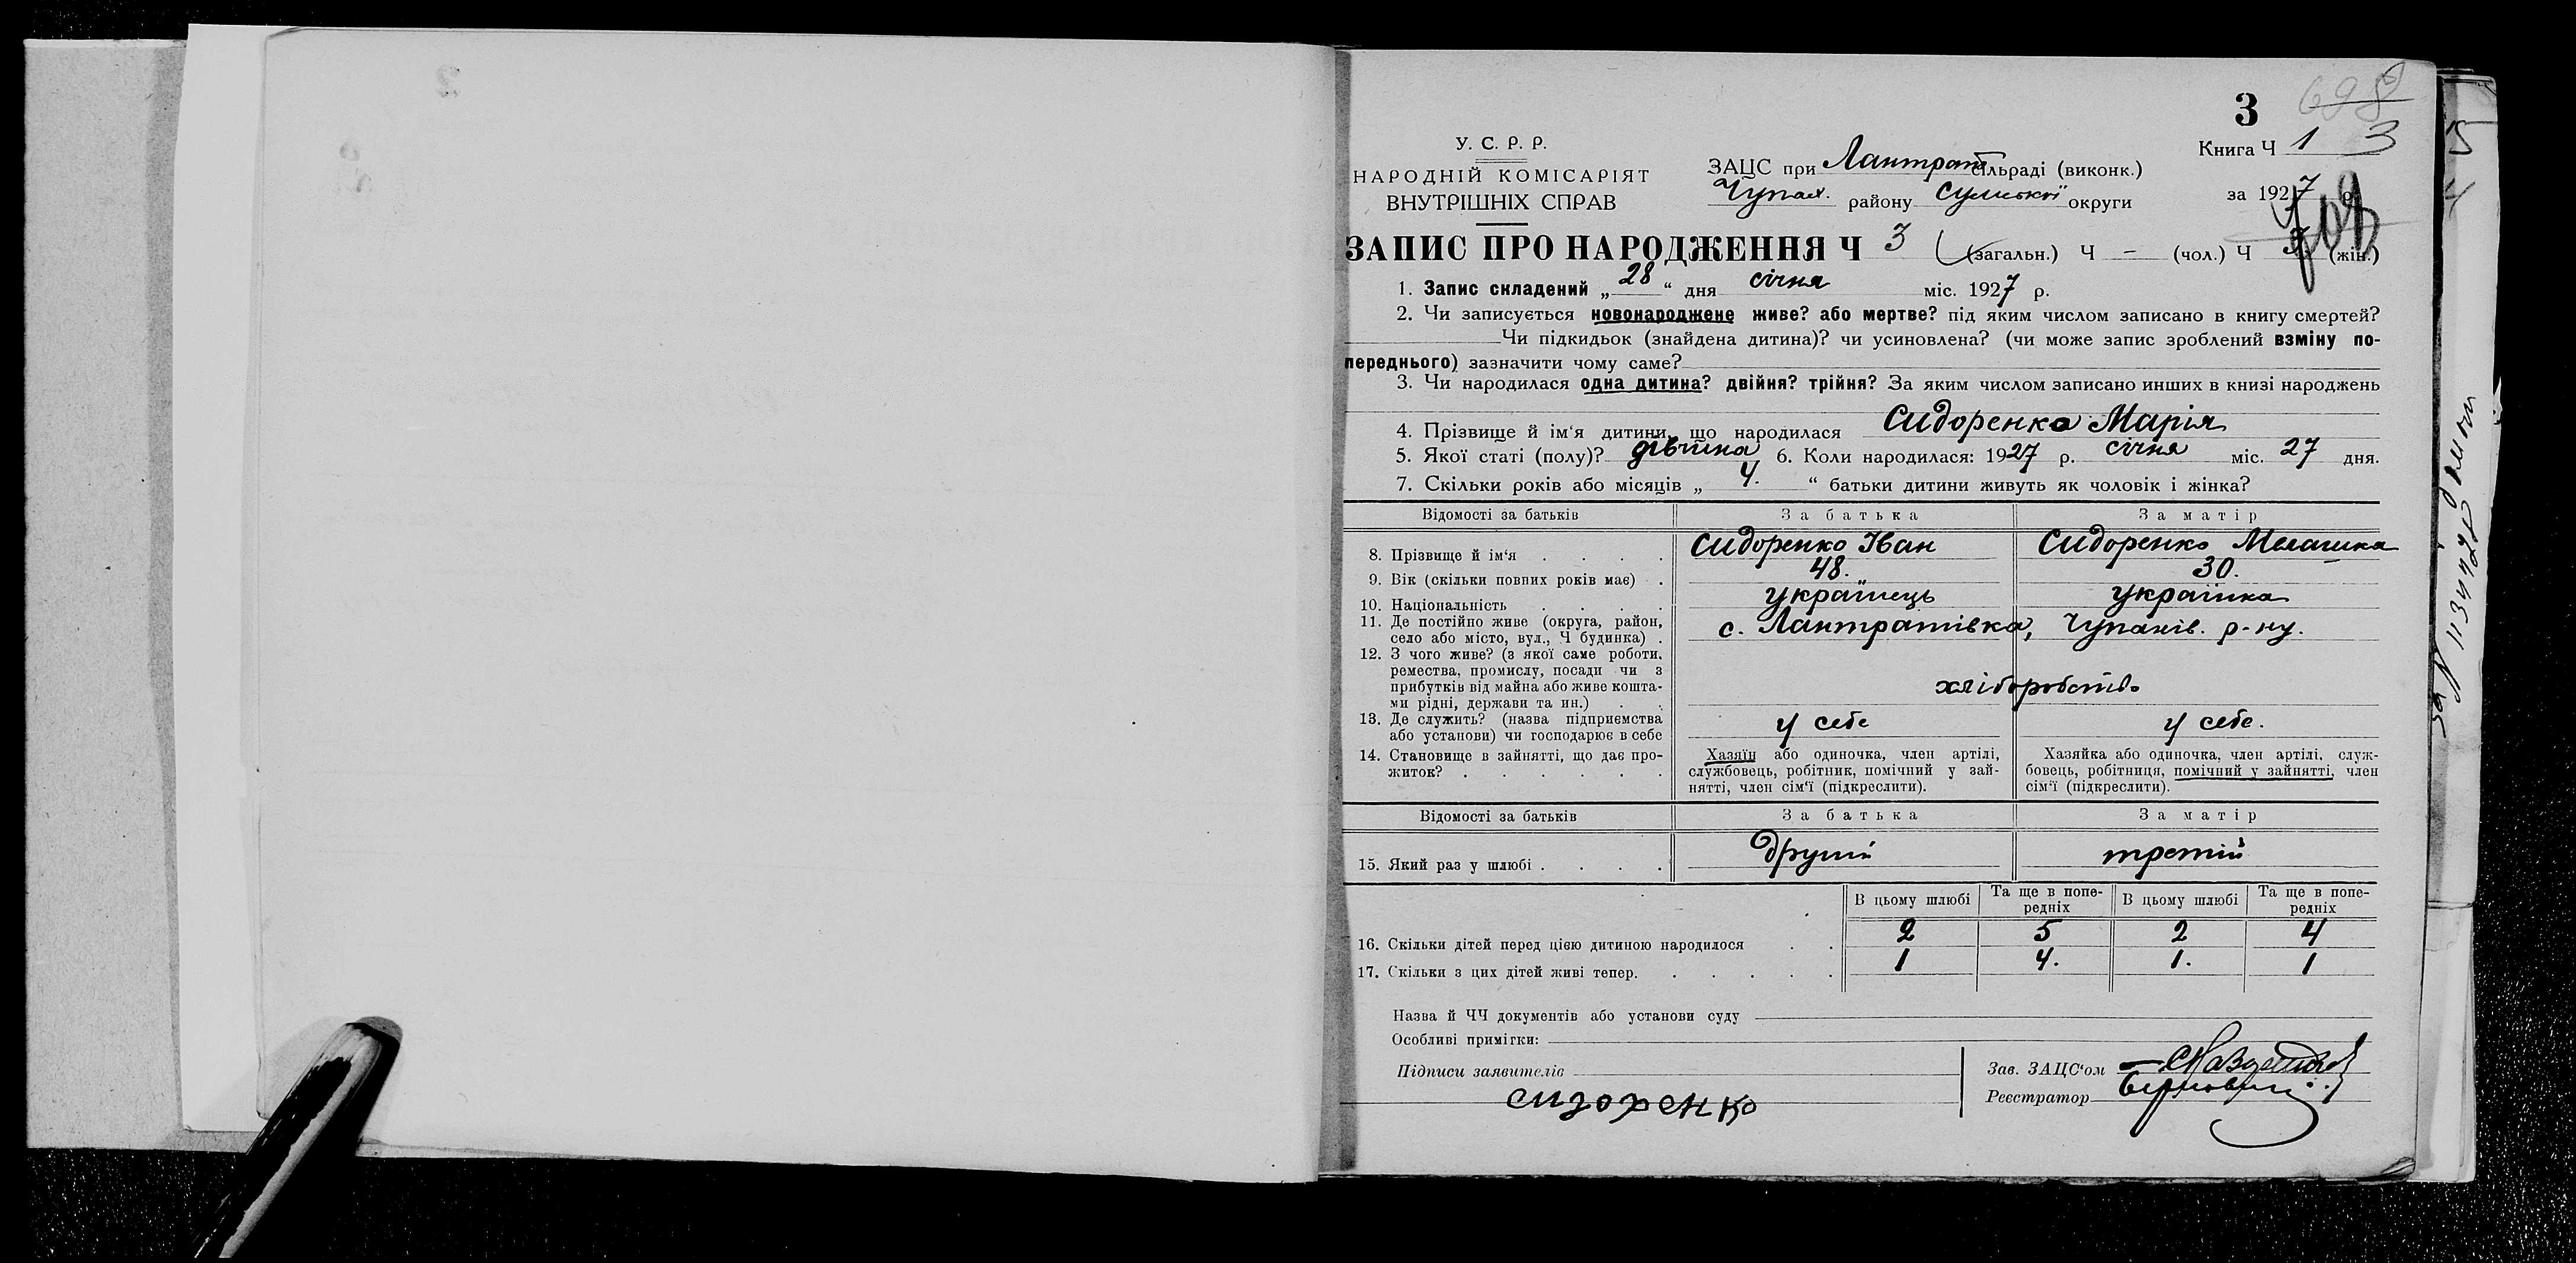 3
698
У. С. Р. Р.
НАРОДНІЙ КОМІСАРІЯТ
ВНУТРІШНІХ СПРАВ
ЗАЦС при Лантрат сільраді (виконк.)
Чупах. району Сумської округи
Книга Ч 1 3
за 1927 р.
ЗАПИС ПРО НАРОДЖЕННЯ Ч 3 (загальн.) Ч – (чол.) Ч 3 (жін.)
1. Запис складений „ 28 “ дня січня міс. 1927 р.
2. Чи записується новонароджене живе? або мертве? під яким числом записано в книгу смертей?
Чи підкидьок (знайдена дитина)? чи усиновлена? (чи може запис зроблений взміну по-
переднього) зазначити чому саме?
3. Чи народилася одна дитина? двійня? трійня? За яким числом записано инших в книзі народжень
4. Прізвище й ім‘я дитини, що народилася Сидоренко Марія
5. Якої статі (полу)? дівчина 6. Коли народилася: 1927 р. січня міс. 27 дня.
7. Скільки років або місяців „ 4. “ батьки дитини живуть як чоловік і жінка?
Відомості за батьків За батька За матір
8. Прізвище й ім‘я . . . . Сидоренко Іван Сидоренко Мелашка
9. Вік (скільки повних років має) . 48. 30.
10. Національність . . . . українець українка
11. Де постійно живе (округа, район,
село або місто, вул., Ч будинка) . с. Лантратівка, Чупахів. р-ну.
12. З чого живе? (з якої саме роботи,
ремества, промислу, посади чи з
прибутків від майна або живе кошта-
ми рідні, держави та ин.) . . хліборобство
13. Де служить? (назва підприємства
або установи) чи господарює в себе у себе у себе.
14. Становище в зайнятті, що дає про-
житок? . . . . . .
Хазяїн або одиночка, член артілі,
службовець, робітник, помічний у зай-
нятті, член сім‘ї (підкреслити).
Хазяйка або одиночка, член артілі, служ-
бовець, робітниця, помічний у зайнятті, член
сім‘ї (підкреслити).
Відомості за батьків За батька За матір
15. Який раз у шлюбі . . . . другий третій
В цьому шлюбі Та ще в попе-
редніх В цьому шлюбі Та ще в попе-
редніх
16. Скільки дітей перед цією дитиною народилося . . 2 5 2 4
17. Скільки з цих дітей живі тепер. . . . . . 1 4. 1. 1
Назва й ЧЧ документів або установи суду
Особливі примітки:
Підписи заявителів
Сидоренко
Зав. ЗАЦС‘ом
Реєстратор